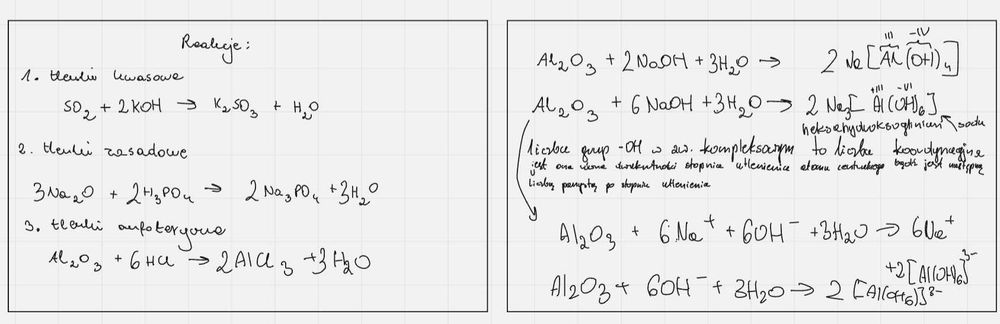 Reakcje:
1. tlenki kwasowe
SO₂ + 2KOH → K₂SO₃ + H₂O
2. tlenki zasadowe
3Na₂O + 2H₃PO₄ → 2Na₃PO₄ + 3H₂O
3. tlenki amfoteryczne
Al₂O₃ + 6HCl → 2AlCl₃ + 3H₂O
III -IV
Al₂O₃ + 2NaOH + 3H₂O → 2Na[Al(OH)₄]
+III -VI
Al₂O₃ + 6NaOH + 3H₂O → 2Na₃[Al(OH)₆]
heksahydroksoglinian sodu
liczba grup -OH w zw. kompleksowym to liczba koordynacyjna
jest ona równa dwukrotności stopnia utlenienia atomu centralnego bądź jest następną
liczbą parzystą po stopniu utlenienia
Al₂O₃ + 6Na⁺ + 6OH⁻ + 3H₂O → 6Na⁺
+2[Al(OH)₆]³⁻
Al₂O₃ + 6OH⁻ + 3H₂O → 2[Al(OH₆)]³⁻